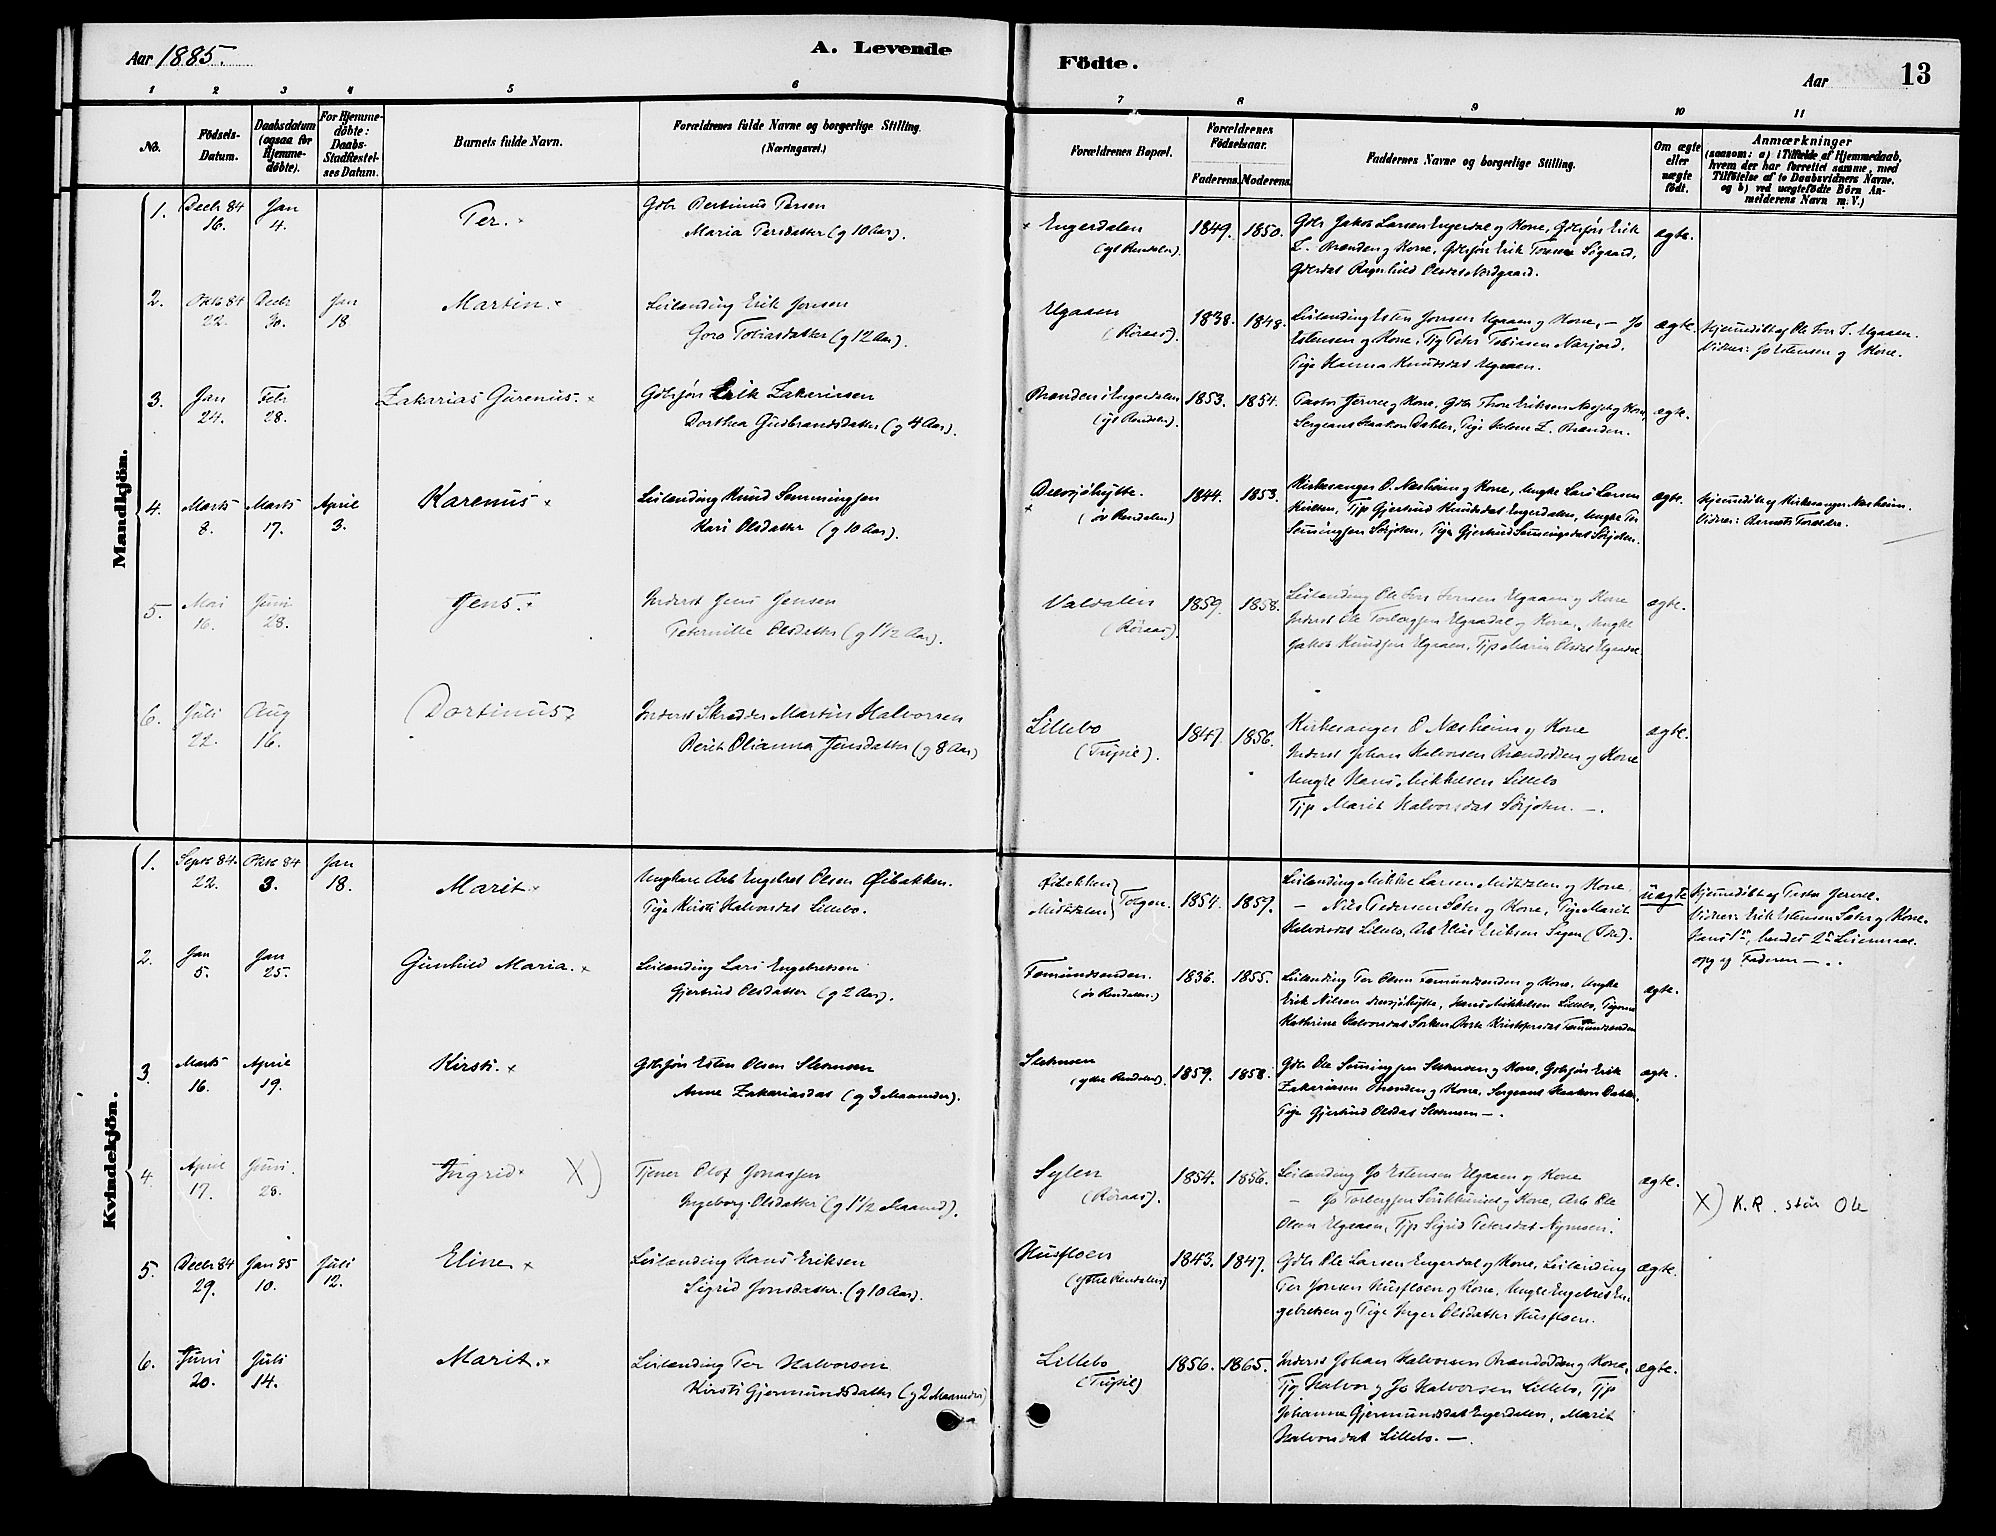 Aar 1885.
A. Levende
Födte.
Aar
13
1 2 3 4 5 6 7 8 9 10 11
No.
Födsels-Datum.
Daabsdatum (ogsaa for Hjemme-döbte).
For Hjemme-döbte: Daabs-Stadfæstel-ses Datum.
Barnets fulde Navn.
Forældrenes fulde Navne og borgerlige Stilling.
(Næringsvei.)
Forældrenes Bopæl.
Forældrenes Födselsaar.
Faderens. Moderens.
Faddernes Navne og borgerlige Stilling.
Om ægte eller uægte födt.
Anmærkninger
(saasom: a) i Tilfælde af Hjemmedaab,
hvem der har forrettet samme, med
Tilföielse af to Daabsvidners Navne,
og b) ved uægtefödte Börn An-
melderens Navn m. V.)
Mandkjön.
1. Decbr 84 16. Jan 4. Per.
Gbr Bertinus Persen
Maria Persdatter (g 10 Aar).
Engerdalen
(yt Rendalen).
1849. 1850.
Gbr Jakob Larsen Engerdal og Kone, Gbrsøn Erik
Z. Brænden og Kone, Gbrsøn Erik Tomsen Sögaard,
Gbrdat Ragnhild Olsdat Nordgaard.
ægte.
2. Oktb 84 22. Decbr 30. Jan 18 Martin.
Leilending Erik Jonsen
Goro Tobiasdatter (g 12 Aar).
Elgaaen
(Röraas).
1838. 1848.
Leilending Esten Jonsen Elgaaen og Kone, – Jo
Estensen og Kone, Tjg Peter Tobiasen Narjord,
Pige Hanna Knudsdat Elgaaen.
ægte.
Hjemmedöbt af Ole Jon J. Elgaaen.
Vidner: Jo Estensen og Kone.
3. Jan 24. Febr 28. Zakarias Gurenus.
Gbrsjön Erik Zakariasen
Dorthea Gudbrandsdatter (g 4 Aar).
Brænden i Engerdalen
(yt Rendalen).
1853. 1854.
Pastor Jerve og Kone, Gbr Thore Eriksen og Kone,
Sergeant Haakon Dahlen, Pige Helene Z. Brænden.
ægte.
4. Marts 8. Marts 17. April 3. Karenus
Leilending Knud Semmingsen
Kari Olsdatter (g 10 Aar).
Drevsjöhytte.
(öv Rendalen)
1844. 1853.
Kirkesanger O. Næsheim og Kone, Ungkr Lars Larsen
Kvilten, Tjp Gjertrud Knudsdat Engerdalen, Ungkr Per
Semmingsen Sörjoten, Pige Gjertrud Semmingsdat Sörjoten.
ægte.
Hjemmedöbt af Kirkesanger Næsheim.
Vidner: Barnets Forældre.
5. Mai 16. Juni 28. Jens.
Inderst Jens Jensen
Peternille Olsdatter (g 1 1/2 Aar).
Valdalen
(Röraas).
1859. 1858.
Leilending Ole Jon Jonsen Elgaaen og Kone
Inderst Ole Torbergsen Elgaadal og Kone, Ungkr
Jakob Knudsen Elgaaen, Tjp Maren Olsdat Elgaaen.
ægte.
6. Juli 22. Aug 16. Dortinus
Inderst Skrædder Martin Halvorsen
Berit Olianna Jensdatter (g 8 Aar)
Lillebo
(Trysil).
1847. 1856.
Kirkesanger O Næsheim og Kone
Inderst Johan Halvorsen Brændodden og Kone
Ungkr Hans Mikkelsen Lillebo
Tjp Marit Halvorsdat Sörjoten. –.
ægte.
Kvindekjön.
1. Septb 84. 22. Oktb 84 3. Jan 18. Marit
Ungkare Arb Engebret Olsen Öibakken.
Pige Kirsti Halvorsdat Lillebo.
Öibakken
Midtdalen } Tolgen.
1854. 1859.
Leilending Mikkel Larsen Midtdalen og Kone
– Nils Pedersen Sæter og Kone, Pige Marit
Halvorsdat Lillebo, Arb Elias Eriksen Sagen (Tolg).
uægte
Hjemmedöbt af Pastor Jerve.
Vidner: Erik Estensen Sæter og Kone.
Hans 1ste, hendes 2det Leiermaal.
opg af Faderen –.
2. Jan 5. Jan 25. Gunhild Maria.
Leilending Lars Engebretsen
Gjertrud Olsdatter (g 2 Aar).
Femundsenden.
(öv Rendalen.)
1836. 1855.
Leilending Per Olsen Femundsenden og Kone, Ungkr
Erik Nilsen Drevsjöhytte, Hans Mikkelsen Lillebo, Pigerne
Kathrine Halvorsdat Sorken, Berte Kristofersdat Femundsenden
ægte.
3. Marts 16. April 19. Kirsti.
Gbrsjön Esten Olsen Slemmen
Anne Zakariasdat (g 3 Maaneder).
Slemmen
(yttre Rendalen).
1859. 1858.
Gbr Ole Semmingsen Slemmen og Kone, Gbrsjön Erik
Zakariasen Brænden og Kone, Sergeant Haakon Dahlen,
Pige Gjertrud Olsdat Slemmen –.
ægte.
4. April 17. Juni 28. Ingrid X)
Tjener Olof Jonassen
Ingeborg Olsdatter (g 1 1/2 Maaned).
Sylen
(Röraas).
1854. 1856.
Leilending Jo Estensen Elgaaen og Kone
– Jo Torbergsen og Kone, Arb Ole
Olsen Elgaaen, Tjp Sigrid Petersdat Nymoen.
ægte.
X) K.R. står Ole
5. Decbr 84 29. Jan 85 10. Juli 12. Eline
Leilending Hans Eriksen
Sigrid Jonsdatter. (g 10 Aar).
Husfloen
(yttre Rendalen)
1843. 1847.
Gbr Ole Larsen Engerdal og Kone, Leilending
Per Jonsen Husfloen og Kone, Ungkr Engebret En-
gebretsen og Pige Inger Olsdatter Husfloen.
ægte.
6. Juni 20. Juli 14. Marit.
Leilending Per Halvorsen
Kirsti Gjermundsdatter (g 2 Maaneder)
Lillebo
(Trysil)
1856. 1865.
Inderst Johan Halvorsen Brændodden og Kone,
Tjg Halvor og Jo Halvorsen Lillebo, Tjp
Johanne Gjermundsdat Engerdalen, Marit
Halvorsdat Lillebo. –.
ægte.